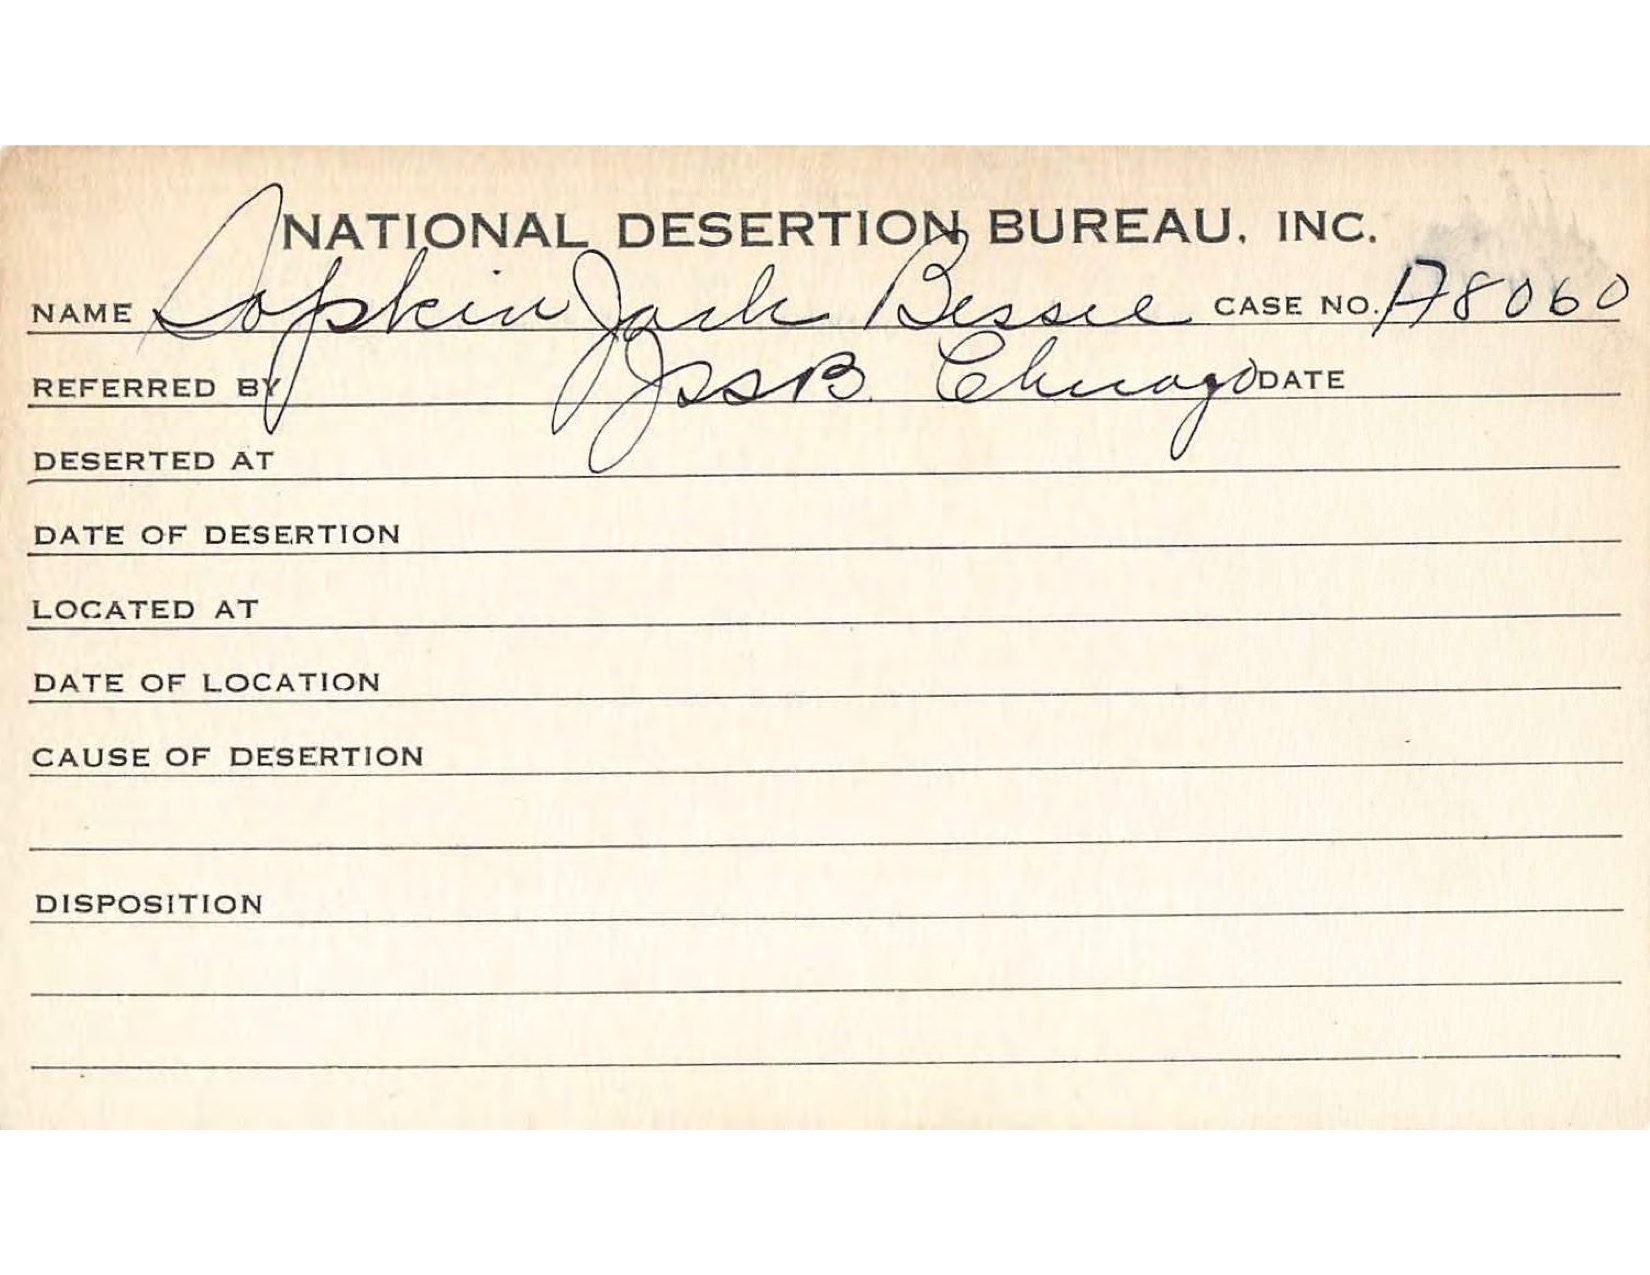 NATIONAL DESERTION BUREAU, INC.
NAME Sopkin Jack Bessie CASE NO. A8060
REFERRED BY JSSB. Chicago DATE
DESERTED AT
DATE OF DESERTION
LOCATED AT
DATE OF LOCATION
CAUSE OF DESERTION
DISPOSITION